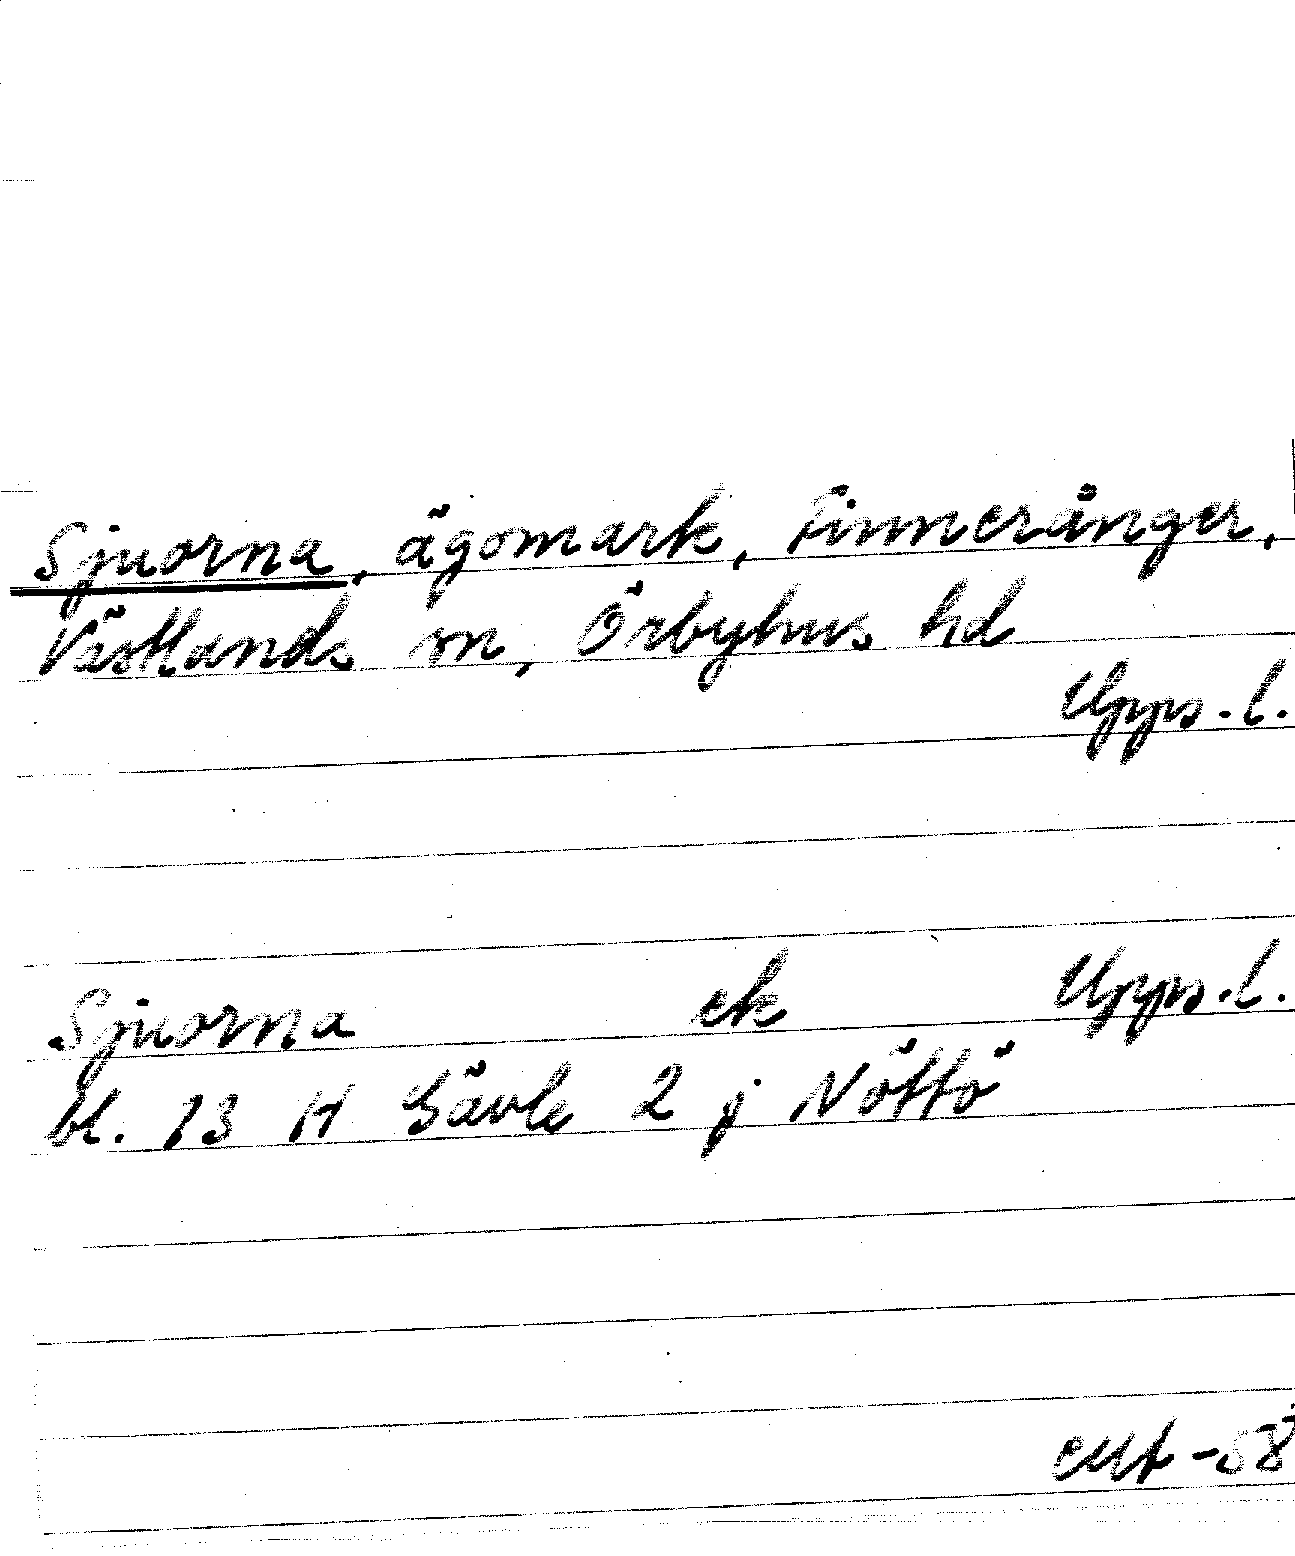 Sjuorna, ägomark, Finneränger,
Västlands sn, Örbyhus hd
Upps.l.
Sjuorna ek Upps.l.
bl. 13 H Gävle 2 j Nöttö
-58